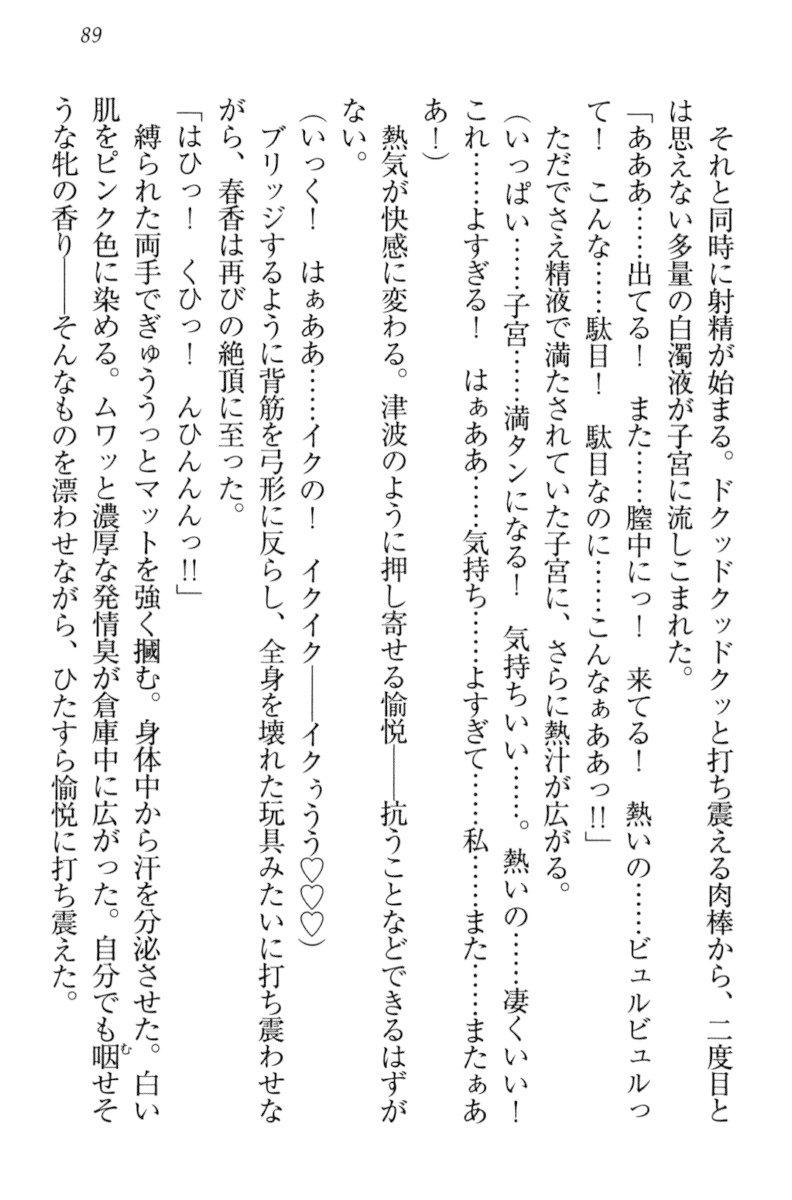 89
それと同時に射精が始まる。ドクッドクッドクッと打ち震える肉棒から、二度目と
は思えない多量の白濁液が子宮に流しこまれた。
「あああ……出てる！　また……膣中にっ！　来てる！　熱いの……ビュルビュルっ
て！　こんな……駄目！　駄目なのに……こんなぁああっ!!」
ただでさえ精液で満たされていた子宮に、さらに熱汁が広がる。
（いっぱい……子宮……満タンになる！　気持ちいい……。熱いの……凄くいい！
これ……よすぎる！　はぁああ……気持ち……よすぎて……私……また……またぁあ
あ！）
熱気が快感に変わる。津波のように押し寄せる愉悦――抗うことなどできるはずが
ない。
（いっく！　はぁああ……イクの！　イクイク――イクぅうう♡♡♡）
ブリッジするように背筋を弓形に反らし、全身を壊れた玩具みたいに打ち震わせな
がら、春香は再びの絶頂に至った。
「はひっ！　くひっ！　んひんんんっ!!」
縛られた両手でぎゅううっとマットを強く摑む。身体中から汗を分泌させた。白い
肌をピンク色に染める。ムワッと濃厚な発情臭が倉庫中に広がった。自分でも咽せそ
む
うな牝の香り――そんなものを漂わせながら、ひたすら愉悦に打ち震えた。